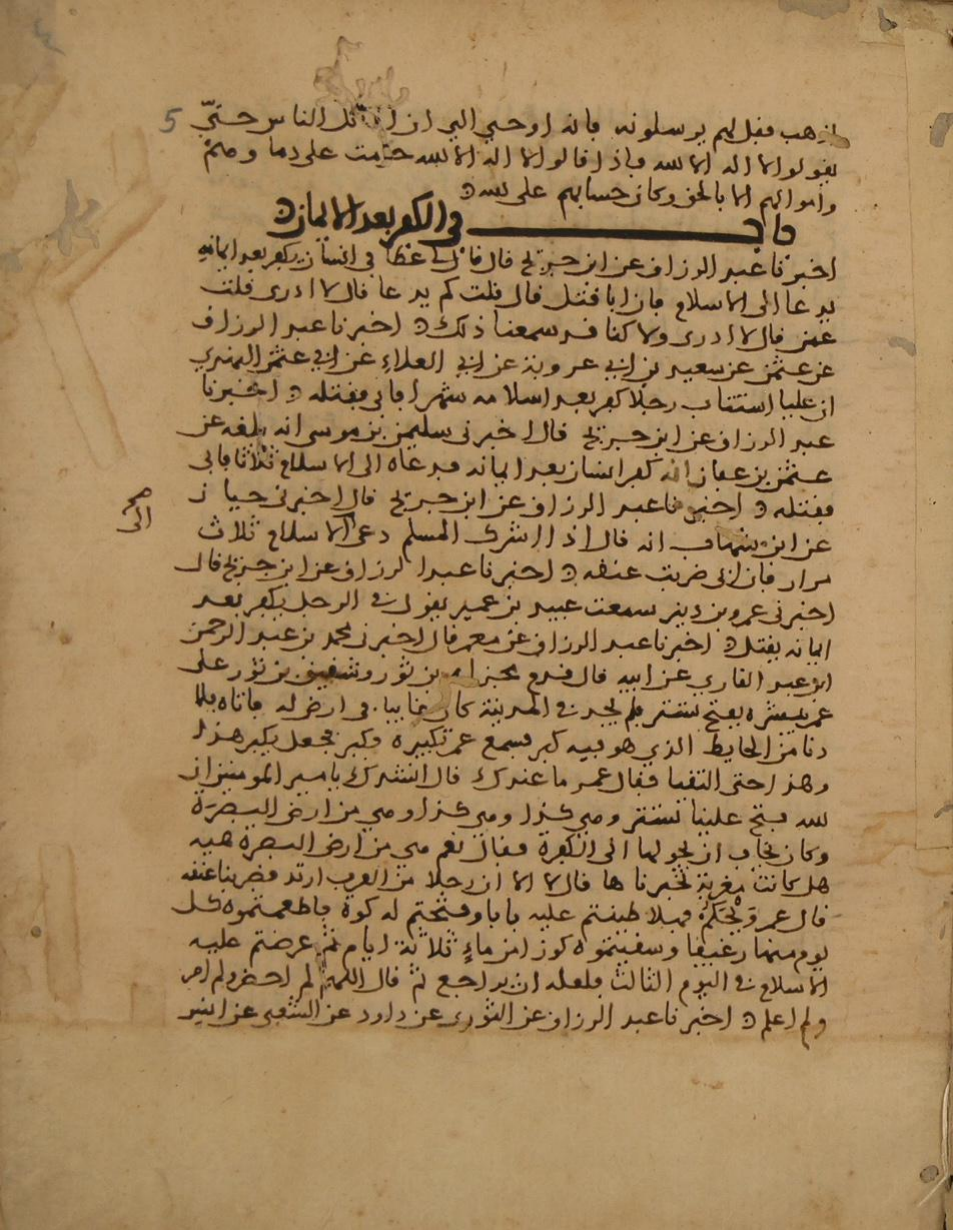 اذهب فقل لهم يرسلونه فانه اوحي الي ان اقاتل الناس حتى 5
يقولوا لا اله الا الله فاذا قالوا لا اله الا الله حرمت علي دماوهم
واموالهم الا بالحق وكان حسابهم على الله
باب في الكفر بعد الايمان
اخبرنا عبد الرزاق عن ابن جريج قال قال لي عطا في انسان يكفر بعد ايمانه
يدعا الى الاسلام فان ابا قتل قال قلت كم يدعا قال لا ادرى قلت
عمن قال لا ادرى ولاكنا قد سمعنا ذلك اخبرنا عبد الرزاق
عن عثمن عن سعيد بن ابي عروبة عن ابي العلاء عن ابي عثمن النهدي
ان عليا استتاب رجلا كفر بعد اسلامه شهرا فابى فقتله اخبرنا
عبد الرزاق عن ابن جريج قال اخبرنى سليمن بن موسى انه بلغه عن
عثمن بن عفان انه كفر انسان بعد ايمانه فدعاه الى الاسلام ثلاثا فابى
فقتله اخبرنا عبد الرزاق عن ابن جريج قال اخبرنى حيان
عن ابن شهاب انه قال اذا اشرك المسلم دعى الى الاسلام ثلاث
الى صح
مرار فان ابى ضربت عنقه اخبرنا عبد الرزاق عن ابن جريج قال
اخبرنى عمرو بن دينر سمعت عبيد بن عمير يقول فى الرجل يكفر بعد
ايمانه يقتل اخبرنا عبد الرزاق عن معمر قال اخبرنى محمد بن عبد الرحمن
ابن عبد القاري عن ابيه قال قدم مجزاه بن ثور وشقيق بن ثور على
عمر يبشره بفتح تستر فلم يجده فى المدينة كان غايبا فى ارض له فاتاه فلما
دنا من الحايط الذي هو فيه كبر فسمع عمر تكبيره فكبر فجعل يكبر هذا
وهذا حتى التقيا فقال عمر ما عندك قال انشدك يا مير المومنين ان
الله فتح علينا تستر وهي كذا وهي كذا وهي من ارض البصرة
وكان يخاف ان يحولها الى الكوفة فقال نعم هي من ارض البصرة هيه
هل كانت مغربة تخبرنا ها قال لا الا ان رجلا من العرب ارتد فضربنا عنقه
قال عمر ويحكم فهلا طينتم عليه بابا وفتحتم له كوة فاطعمتموه كل
يوم منها رغيفا وسقيتموه كوزا من ماء ثلاثة ايام ثم عرضتم عليه
الاسلام فى اليوم الثالث فلعله ان يراجع ثم قال اللهم لم احضر ولم امر
ولم اعلم اخبرنا عبد الرزاق عن الثورى عن داود عن الشعبى عن انس